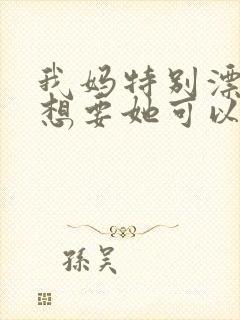 我妈特别漂
想要她可以
孫吴